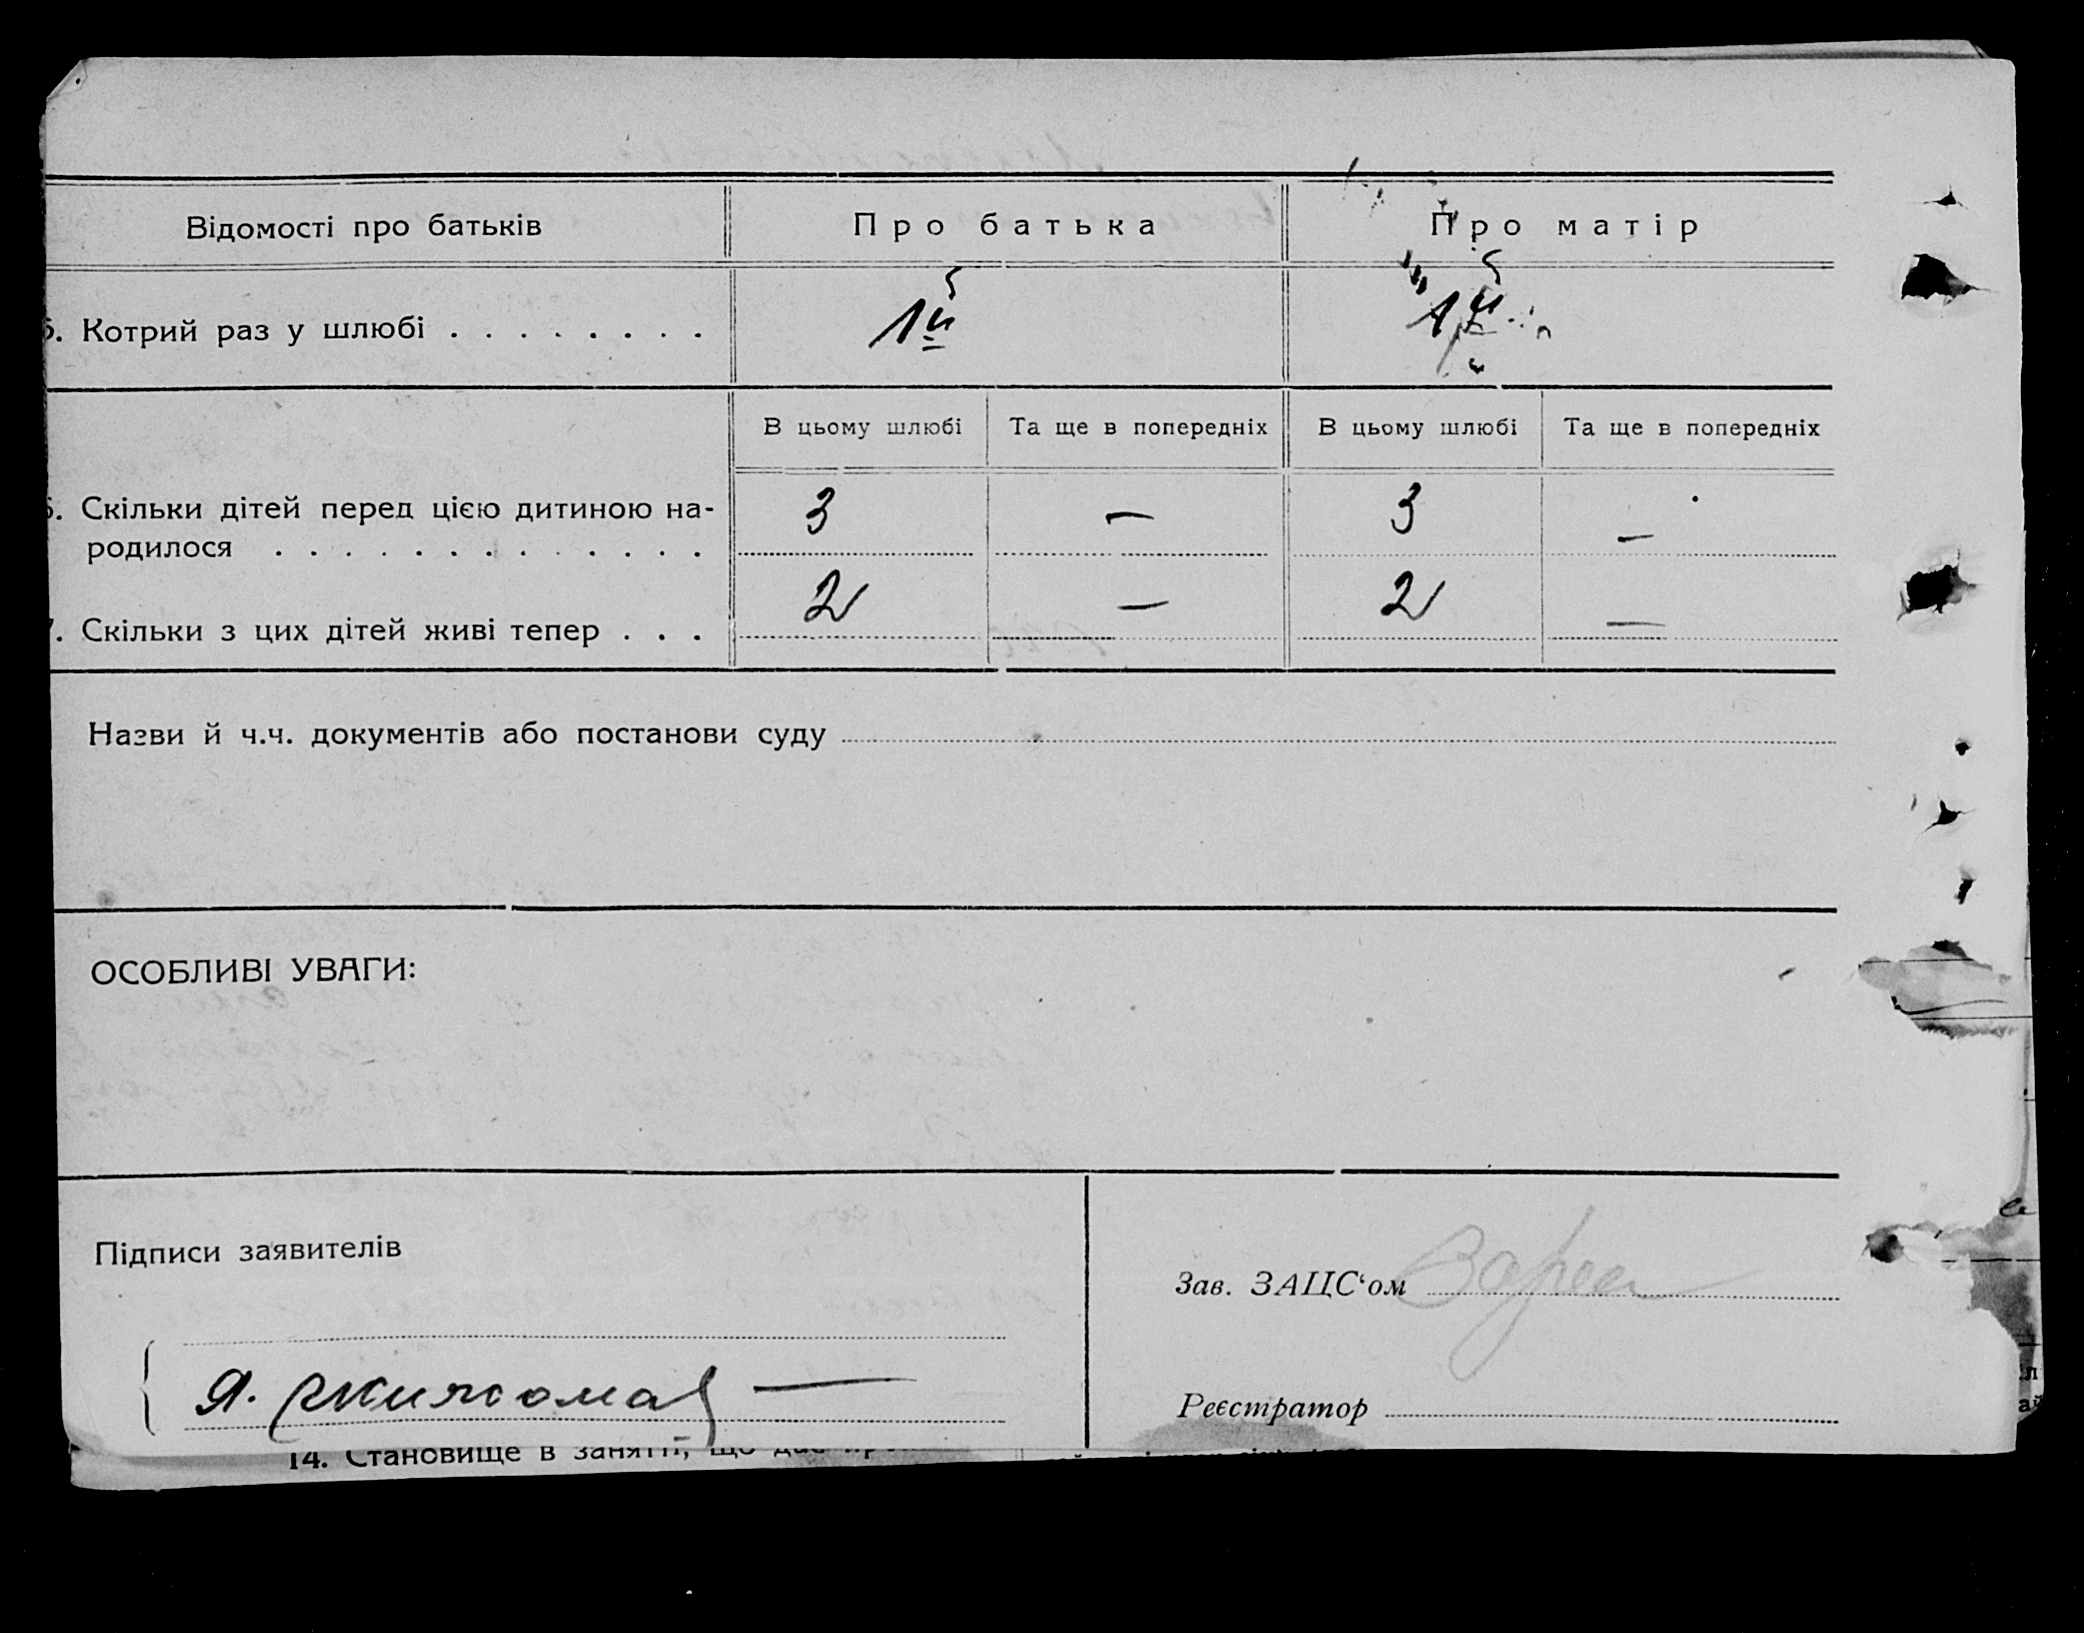 Відомості про батьків Про батька Про матір
5. Котрий раз у шлюбі . . . . . . . . 1й 1й
В цьому шлюбі Та ще в попередніх В цьому шлюбі Та ще в попередніх
6. Скільки дітей перед цією дитиною на- 3 — 3 —
родилося . . . . . . . . . . . . .
7. Скільки з цих дітей живі тепер . . . 2 — 2 —
Назви й ч.ч. документів або постанови суду
ОСОБЛИВІ УВАГИ:
Підписи заявителів
Зав. ЗАЦС‘ом
Я.
Реєстратор
14. Становище в занятті, що дає